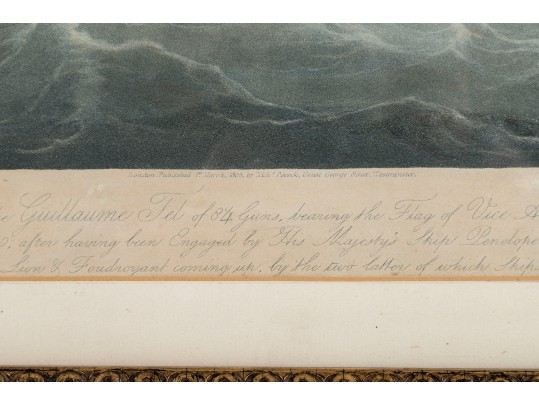 London Published 1st March, 1804, by Edwd Orme, Great George Street, Westminster.
Guillaume Tel of 84 Guns, bearing the Flag of Vice A
after having been Engaged by His Majesty's Ship Penelope
Lion & Foudroyant coming up, by the two latter of which Ship